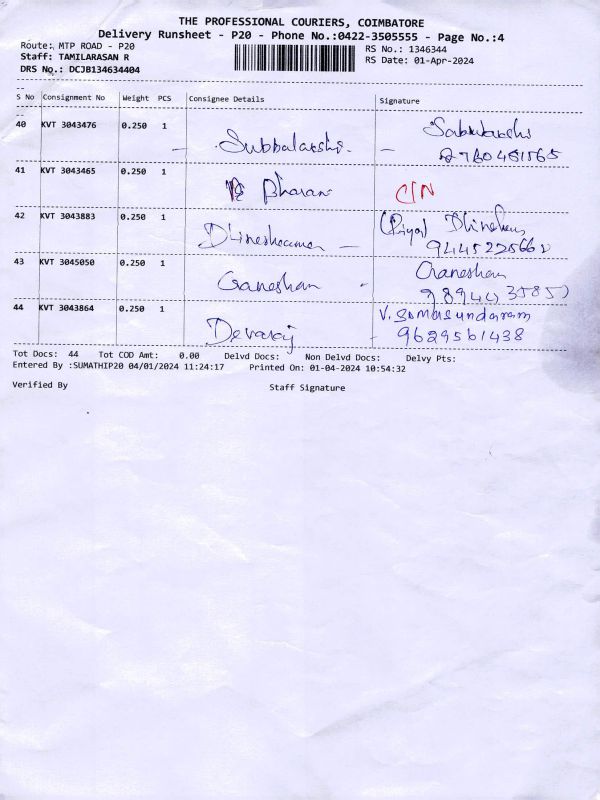 THE PROFESSIONAL COURIERS, COIMBATORE
Delivery Runsheet - P20 - Phone No.:0422-3505555 - Page No.:4
Route: MTP ROAD - P20 RS No.: 1346344
Staff: TAMILARASAN R RS Date: 01-Apr-2024
DRS No.: DCJB134634404
S No Consignment No Weight PCS Consignee Details Signature
40 KVT 3043476 0.250 1
Subbalakshi.
41 KVT 3043465 0.250 1
Bharan C/N
42 KVT 3043883 0.250 1 (Priya)
Dhineshkumar -
43 KVT 3045050 0.250 1 Ganeshan
Ganeshan -
44 KVT 3043864 0.250 1 V. Somasundaram
Devaraj - 9629561438
Tot Docs: 44 Tot COD Amt: 0.00 Delvd Docs: Non Delvd Docs: Delvy Pts:
Entered By :SUMATHIP20 04/01/2024 11:24:17 Printed On: 01-04-2024 10:54:32
Verified By Staff Signature